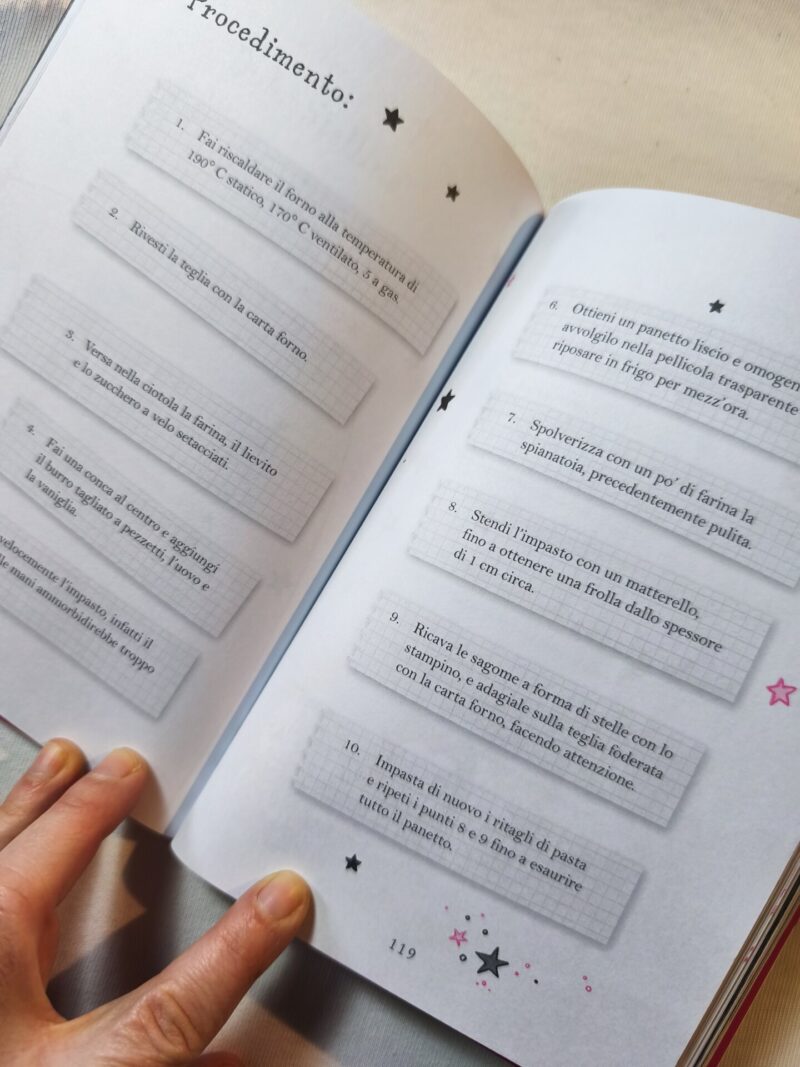 Procedimento:
1. Fai riscaldare il forno alla temperatura di
190° C statico, 170° C ventilato, 5 a gas.
2. Rivesti la teglia con la carta forno.
3. Versa nella ciotola la farina, il lievito
e lo zucchero a velo setacciati.
4. Fai una conca al centro e aggiungi
il burro tagliato a pezzetti, l'uovo e
la vaniglia.
velocemente l'impasto, infatti il
mani ammorbidirebbe troppo
6. Ottieni un panetto liscio e
avvolgilo nella pellicola trasparente
riposare in frigo per mezz'ora.
7. Spolverizza con un po' di farina la
spianatoia, precedentemente pulita.
8. Stendi l'impasto con un matterello,
fino a ottenere una frolla dallo spessore
di 1 cm circa.
9. Ricava le sagome a forma di stelle con lo
stampino, e adagiale sulla teglia foderata
con la carta forno, facendo attenzione.
10. Impasta di nuovo i ritagli di pasta
e ripeti i punti 8 e 9 fino a esaurire
tutto il panetto.
119